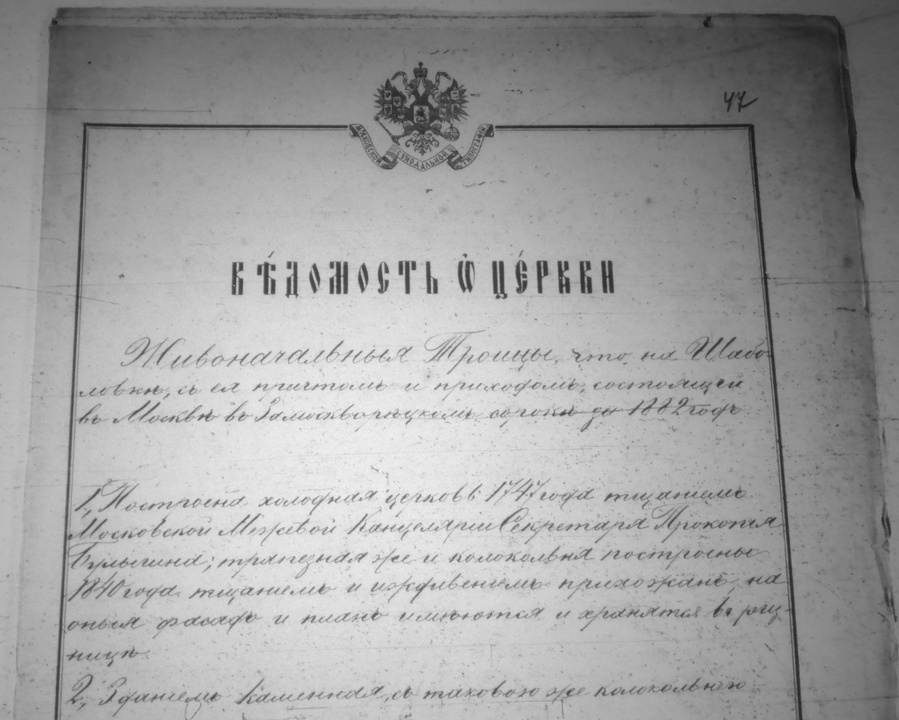 47
МОСКОВСКОЙ СѴНОДАЛЬНОЙ ТИПОГРАФІИ
ВѢДОМОСТЬ Ѡ ЦЕРКВИ
Живоначальныя Троицы, что на Шабо-
ловкѣ, съ ея причтомъ и приходомъ, состоящей
въ Москвѣ въ Замоскворѣцкомъ сорокѣ за 1882 годъ
1, Построена холодная церковь 1747 года тщаніемъ
Московской Межевой Канцеляріи Секретаря Прокопія
Булыгина; трапезная же и колокольня построены
1840 года тщаніемъ и иждивеніемъ прихожанъ, на
оныя фасадъ и планъ имѣются и хранятся въ риз-
ницѣ.
2, Зданіемъ каменная, съ таковою же колокольнею